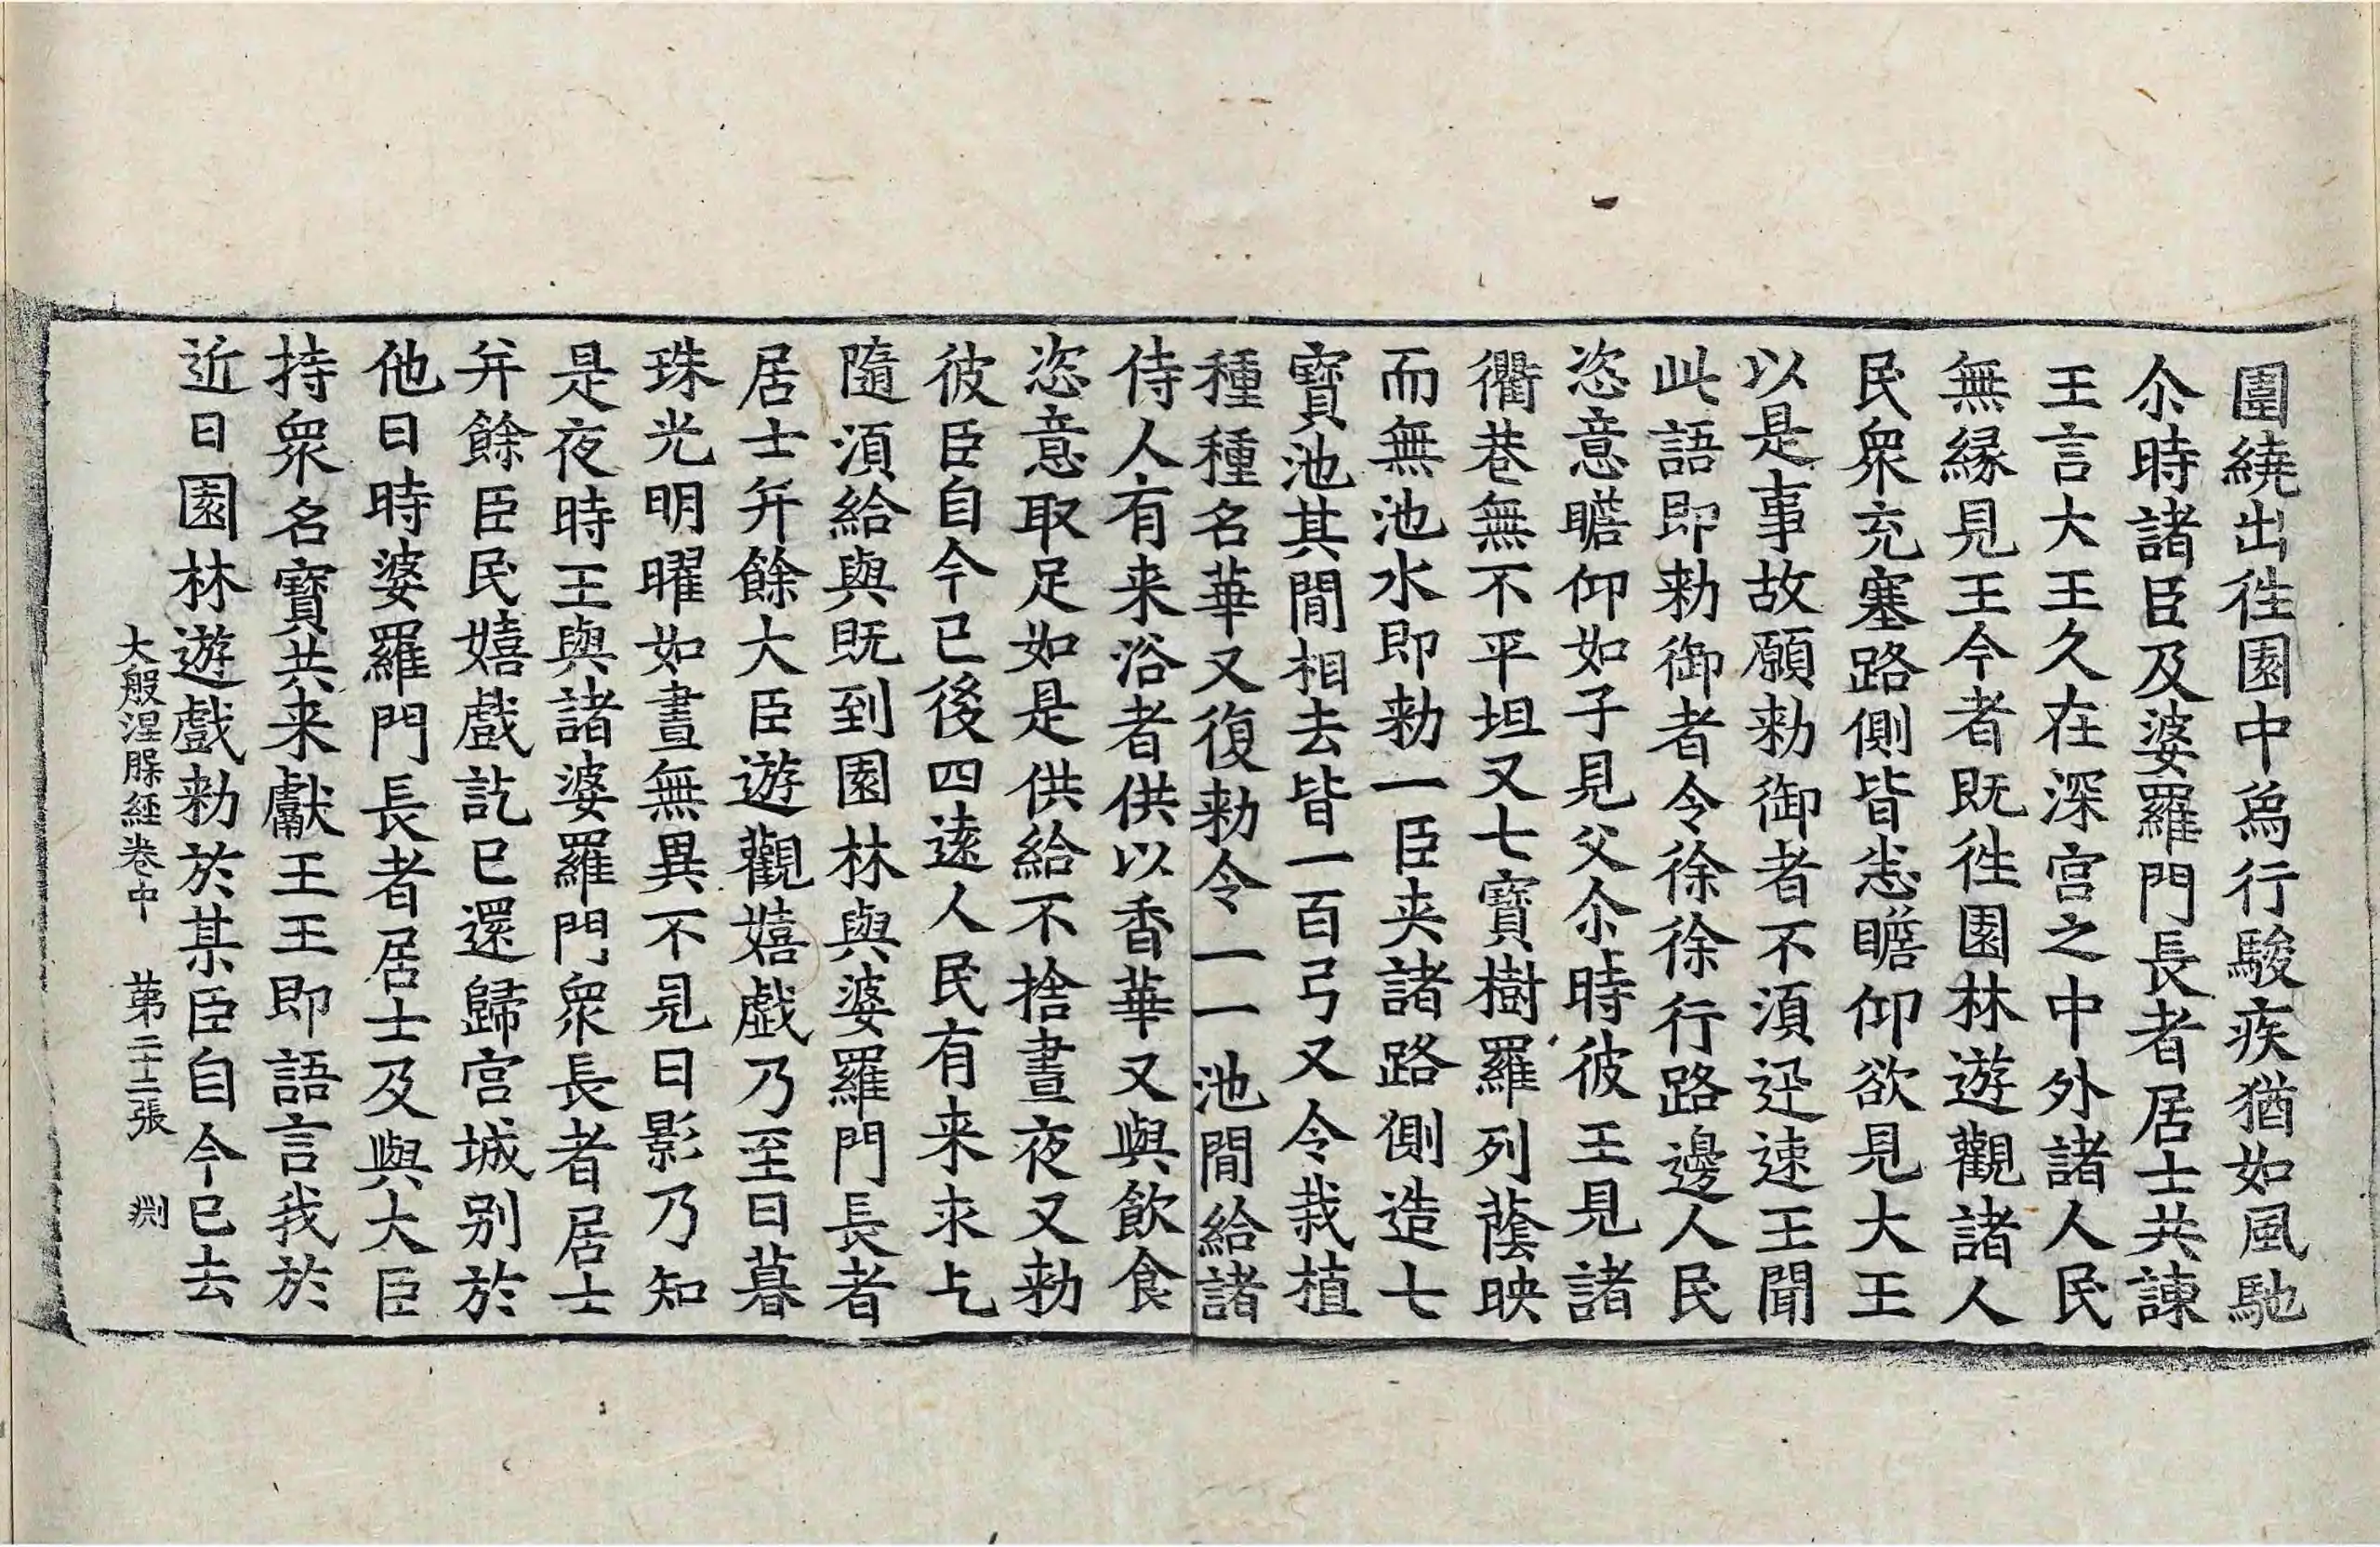 圍繞出徃園中爲行駿疾猶如風馳
尒時諸臣及婆羅門長者居士共諫
王言大王久在深宮之中外諸人民
無縁見王今者既徃園林遊觀諸人
民衆充塞路側皆悉瞻仰欲見大王
以是事故願勑御者不湏迅速王聞
此語即勑御者令徐徐行路邊人民
恣意瞻仰如子見父尒時彼王見諸
衢巷無不平坦又七寶樹羅列蔭映
而無池水即勑一臣夾諸路側造七
寶池其間相去皆一百弓又令栽植
種種名華又復勑令一一池間給諸
侍人有来浴者供以香華又與飲食
恣意取足如是供給不捨晝夜又勑
彼臣自今已後四逺人民有来求乞
隨湏給與既到園林與婆羅門長者
居士并餘大臣遊觀嬉戲乃至日暮
珠光明曜如晝無異不見日影乃知
是夜時王與諸婆羅門衆長者居士
并餘臣民嬉戲訖已還歸宮城别於
他日時婆羅門長者居士及與大臣
持衆名寶共来獻王王即語言我於
近日園林遊戲勑於某臣自今已去
大般涅槃経卷中　苐二十二張　渕